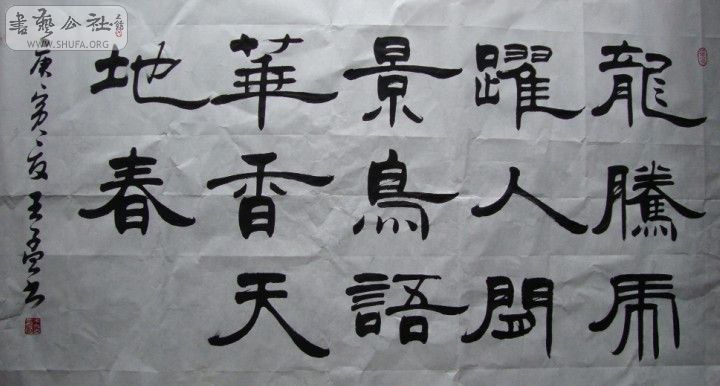 龍騰虎
躍人間
景鳥語
華香天
地春
庚寅夏王孟书
書藝公社
WWW.SHUFA.ORG